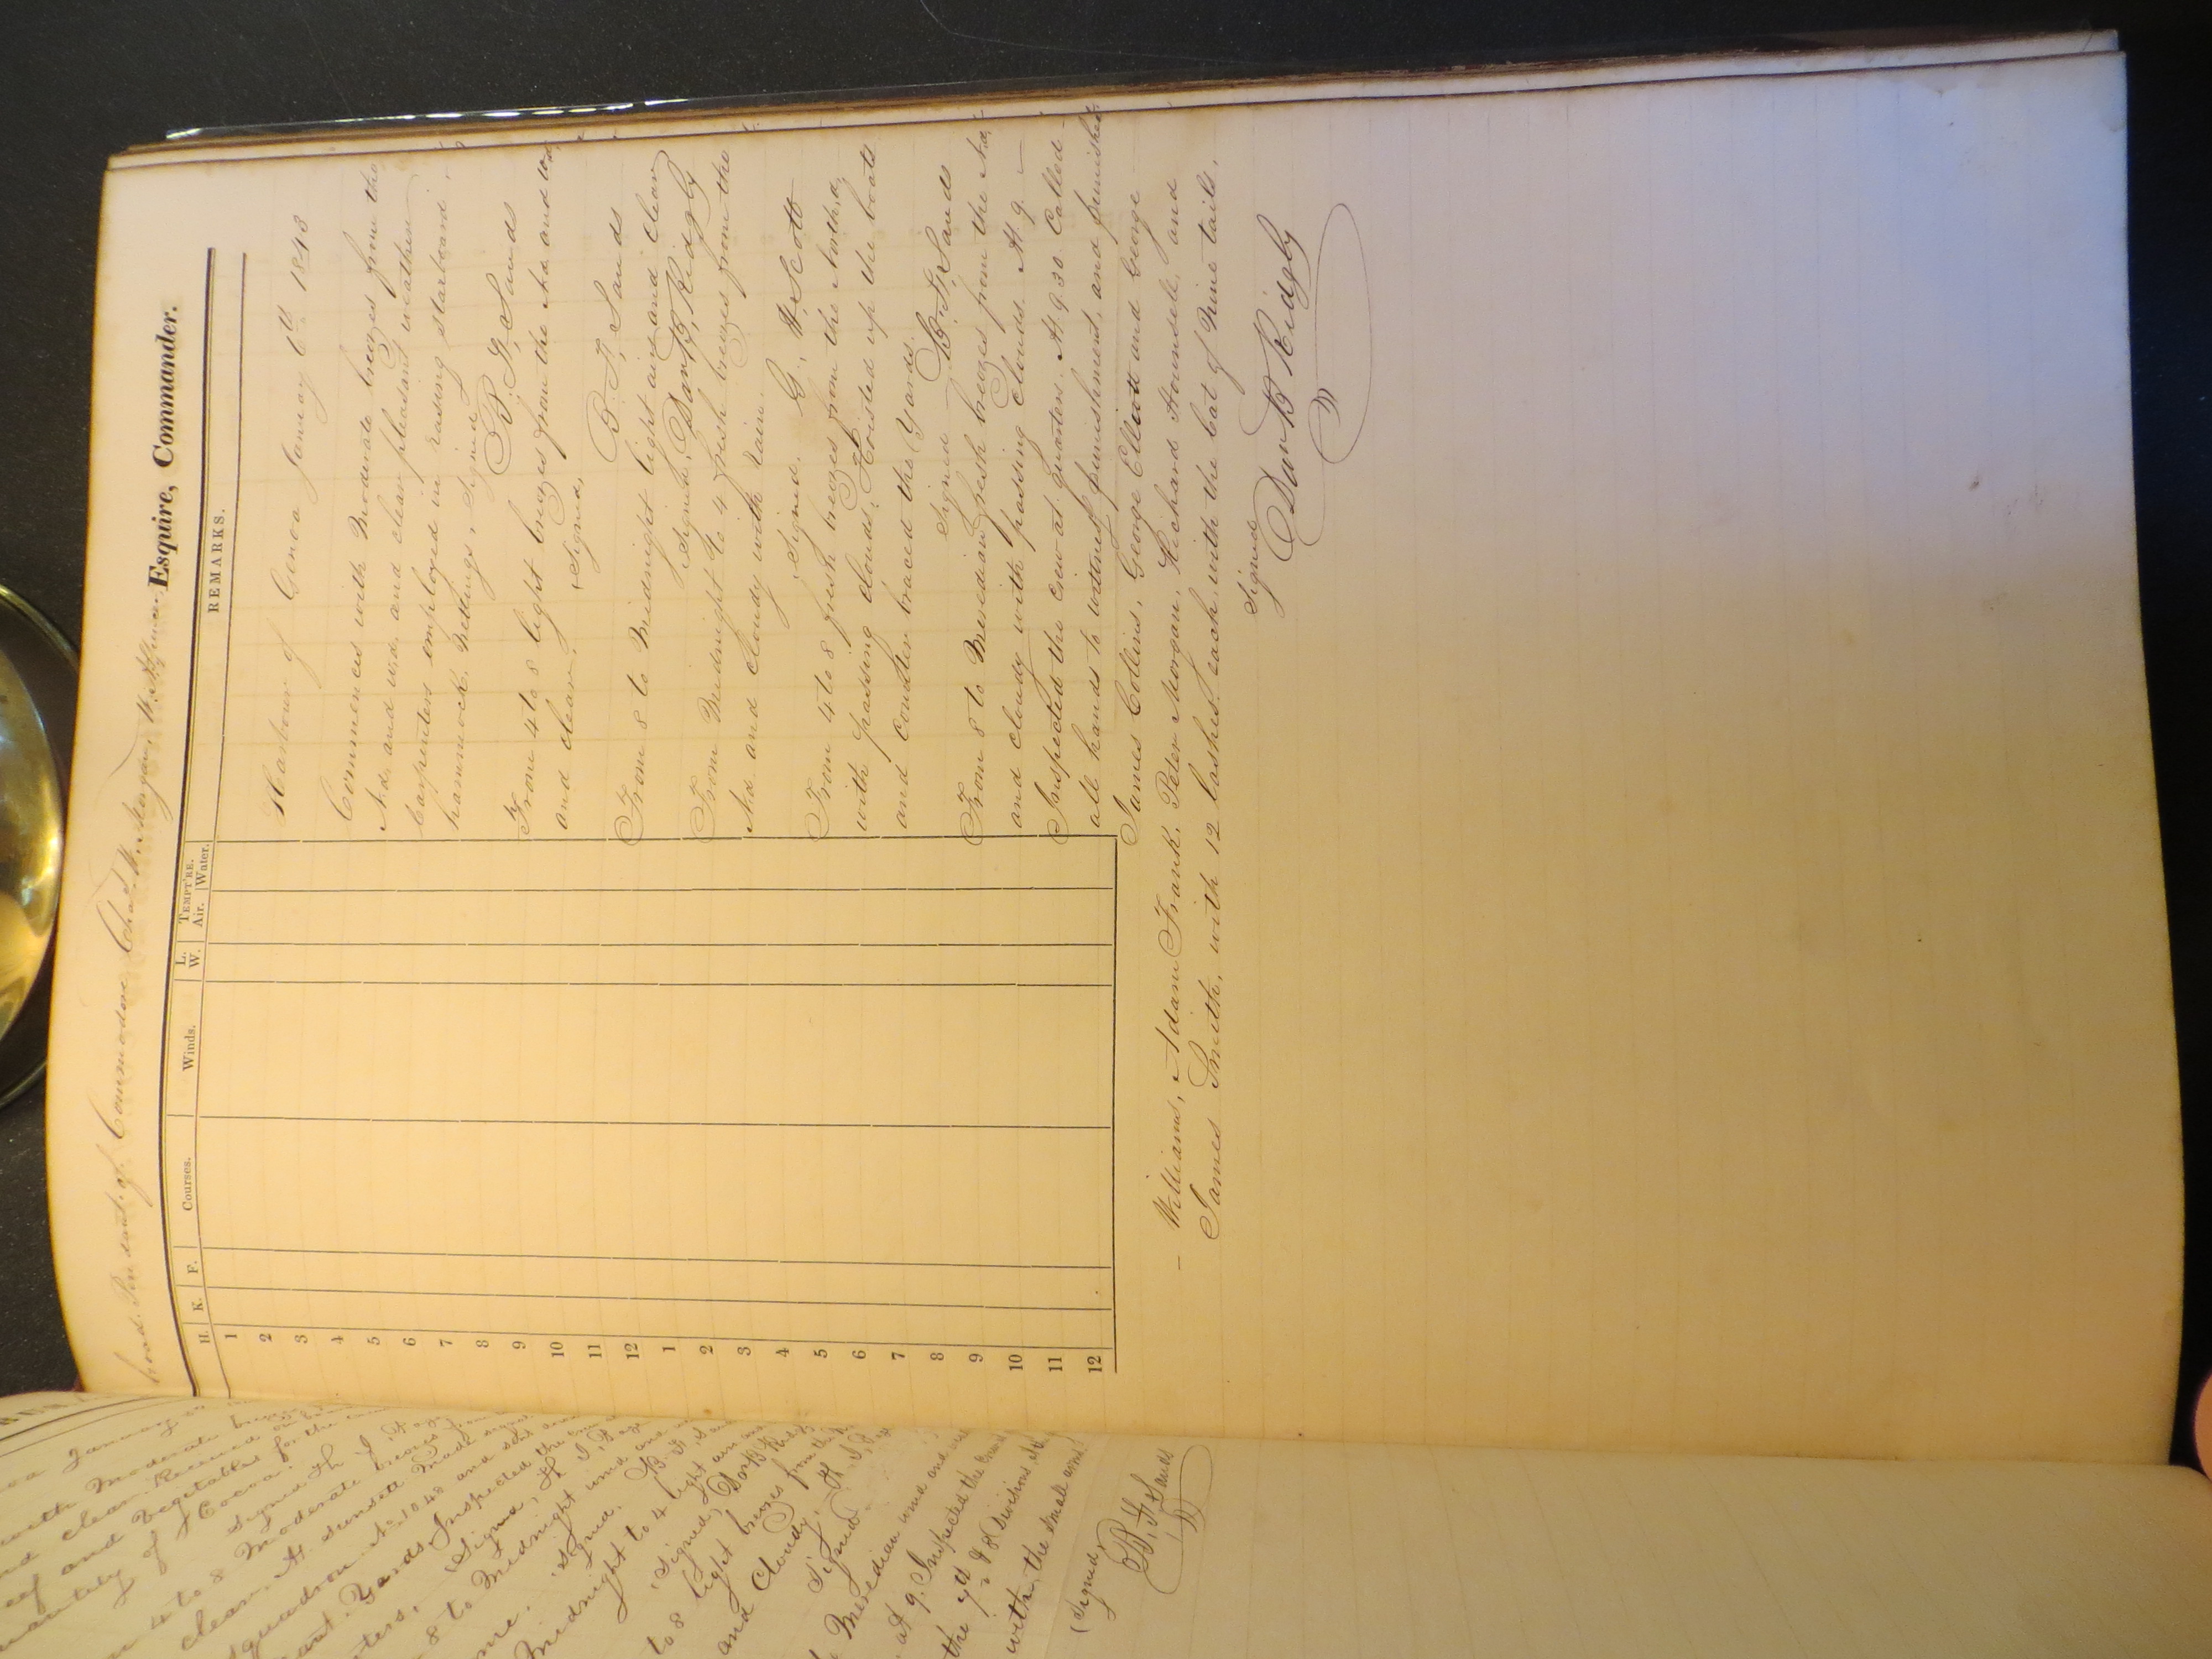 board Pendant of Commodore Chas. W. Morgan, Esquire, Commander.
H. K. F. Courses. Winds. L. W. TEMPT'RE. Air. Water. REMARKS.
1
2
3
4
5
6
7
8
9
10
11
12
1
2
3
4
5
6
7
8
9
10
11
12
Harbour of Genoa January 6th 1843
Commences with Moderate breezes from the
Nd. and Wd. and clear pleasant weather
Carpenters employed in raising starboard
hammock Nettings. Signed
B. F. Sands
From 4 to 8 light breezes from the Nd. and Wd.
and clear. (Signed,
B. F. Sands
From 8 to Midnight light airs and clear
Signed, Dan B, Ridgly
From Midnight to 4 fresh breezes from the
Nd. and cloudy with rain.
Signed. G. H. Scott
From 4 to 8 fresh breezes from the North,d,
with passing clouds, Hoisted up the boats
and counter braced the Yards.
Signed B. F. Sands
From 8 to Meredian fresh breezes from the Nd,
and cloudy with passing clouds. At 9 -
Inspected the crew at quarters. At 9 30 Called -
all hands to witness punishment, and punished
James Collins, George Elliott and George -
- Williams, Adam Frank, Peter Morgan, Richard Hounsele, and
James Smith, with 12 lashes each, with the Cat of Nine tails,
Signed
Dan B Ridgly
January
with Moderate
and clear. Received
and Vegetables for the
quantity of Cocoa.
Signed
4 to 8 Moderate breezes
clear. At sunset
squadron At 10 40 and
Yards Inspected the
Signed,
8 to Midnight
Signed.
Midnight to 4 light
Signed, Dan B
to 8 light breezes from
and Cloudy,
Signed
Meredian wind and
at 9. Inspected the
the 7th & 8 Divisions
with the small arms
(Signed,
B. F. Sands